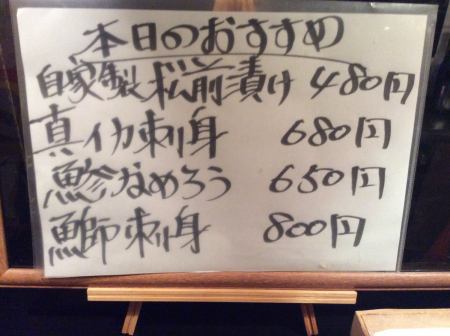 本日のおすすめ
自家製松前漬け 480円
真イカ刺身 680円
鯵なめろう 650円
鰤刺身 800円